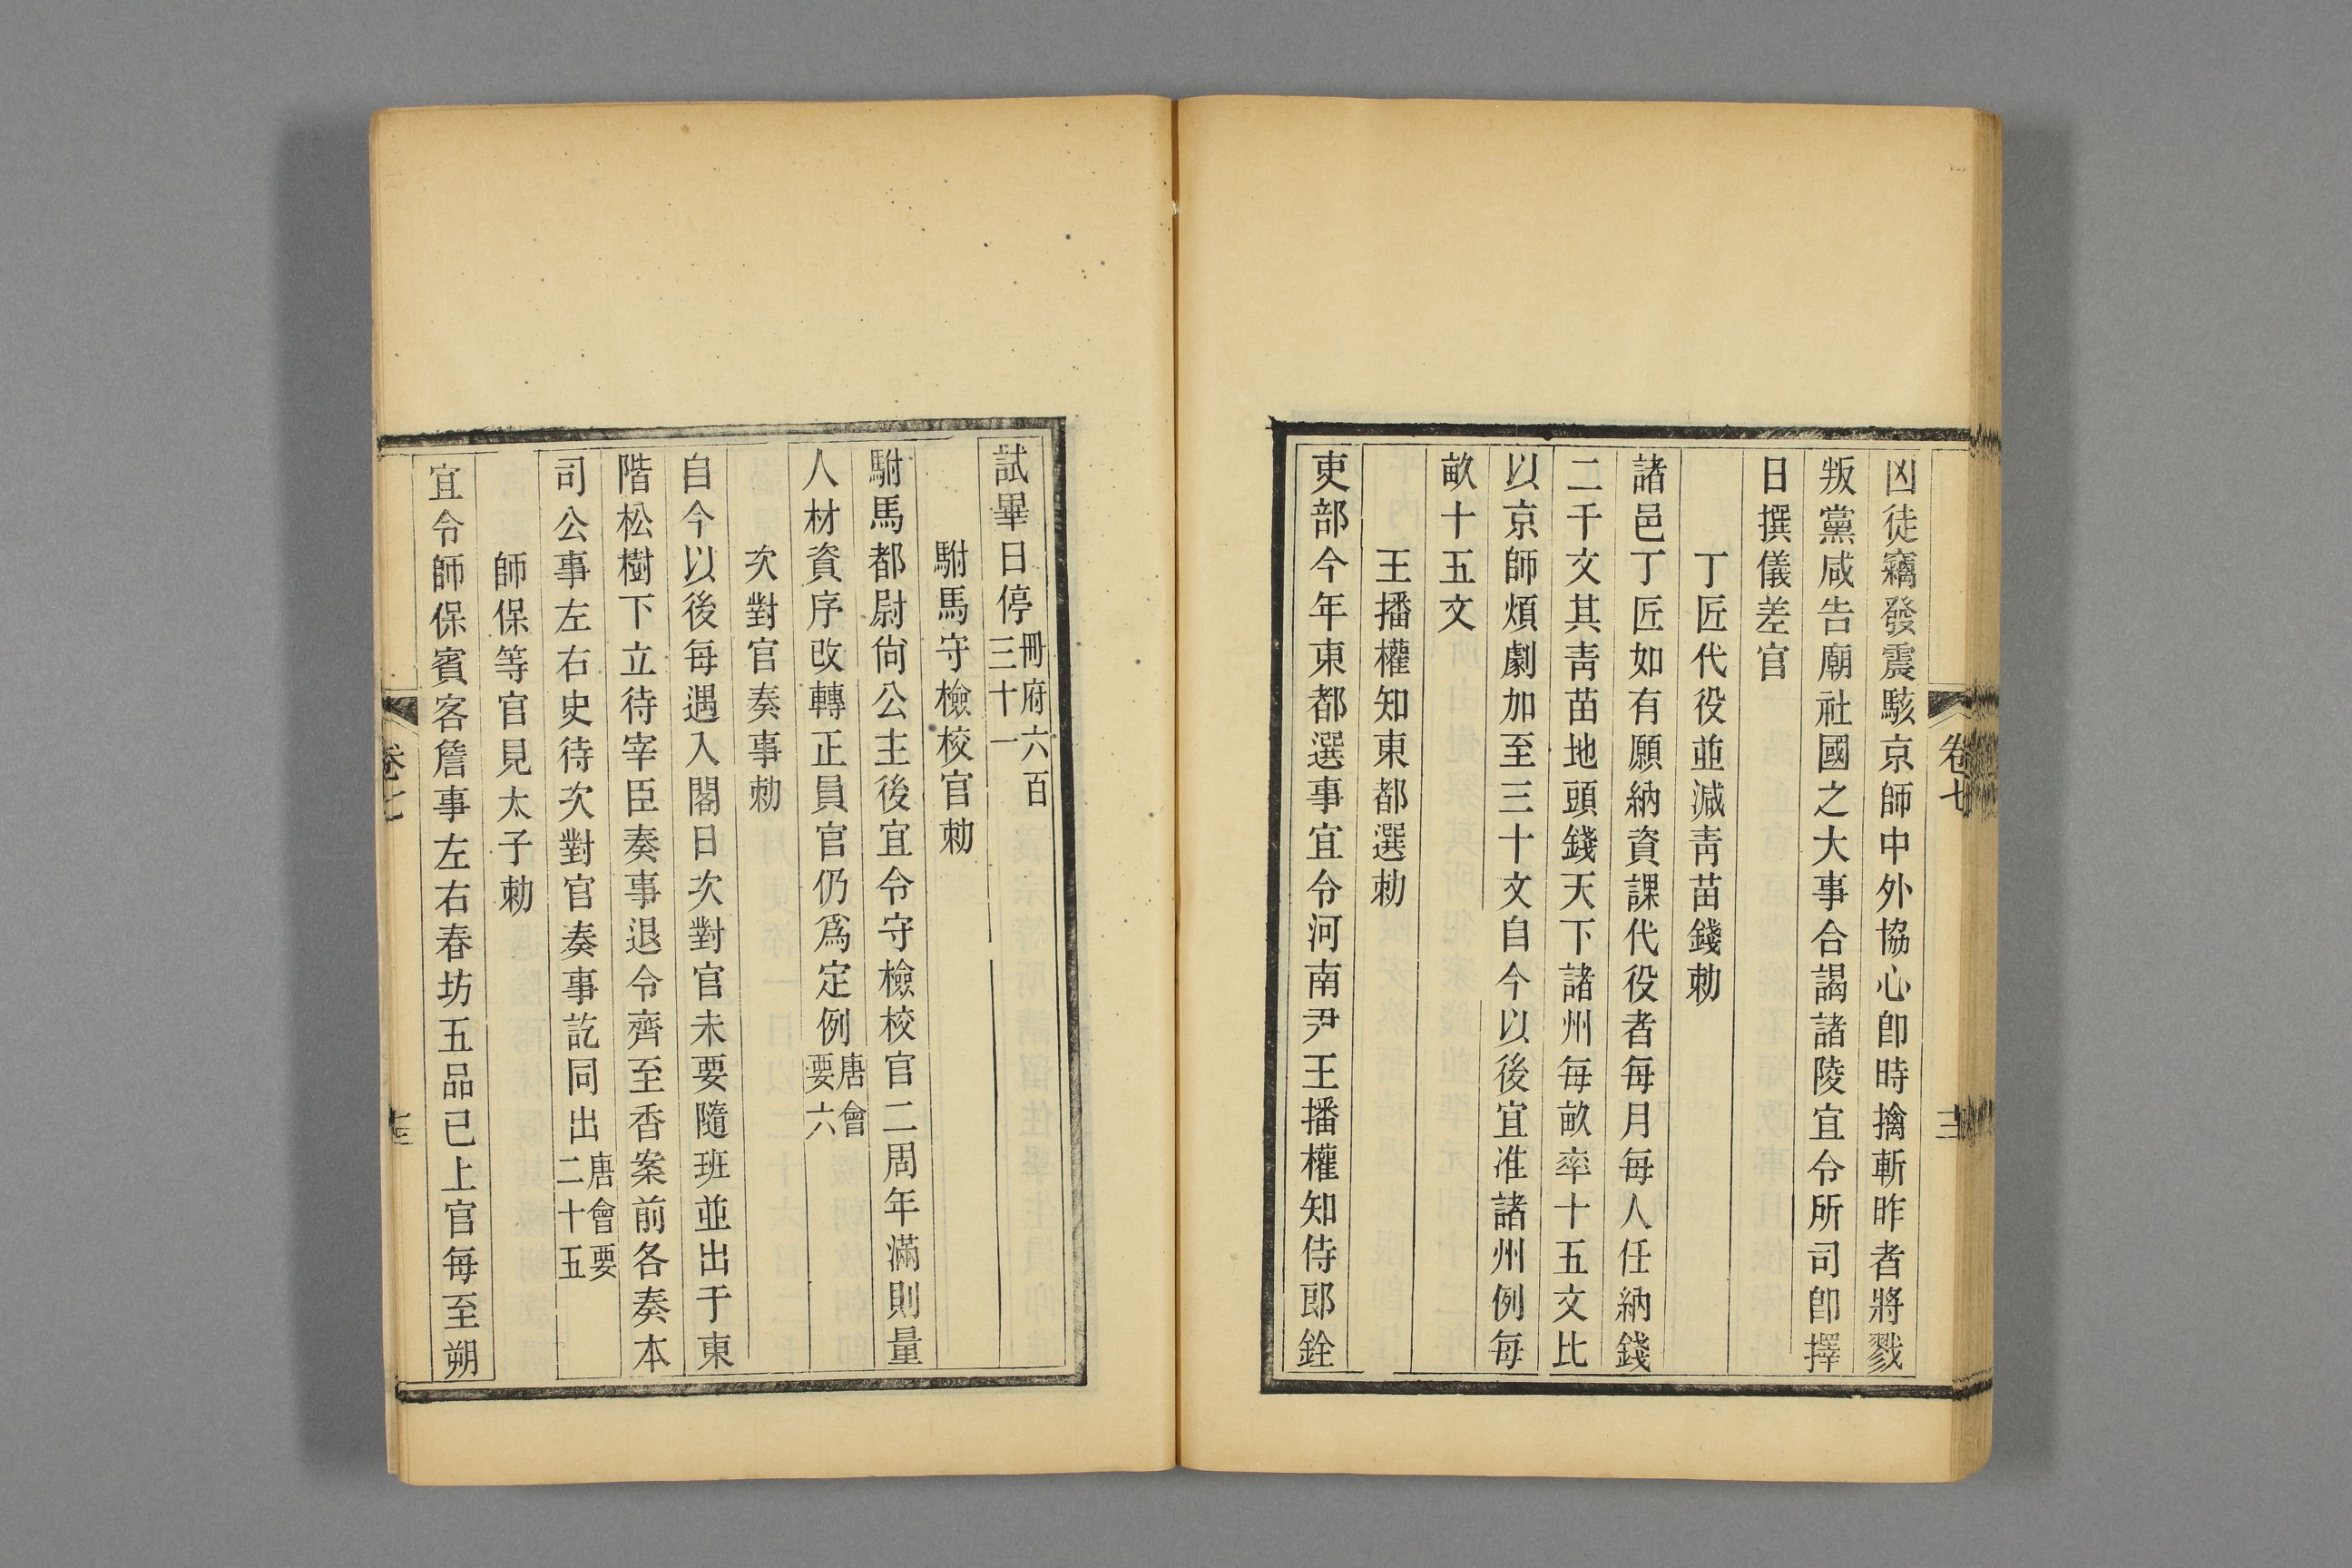 凶徒竊發震駭京師中外協心卽時擒斬昨者將戮
叛黨咸告廟社國之大事合謁諸陵宜令所司卽擇
日撰儀差官
丁匠代役並減靑苗錢勅
諸邑丁匠如有願納資課代役者每月每人任納錢
二千文其靑苗地頭錢天下諸州每畝率十五文比
以京師煩劇加至三十文自今以後宜准諸州例每
畝十五文
王播權知東都選勅
吏部今年東都選事宜令河南尹王播權知侍郎銓
卷七
試畢日停冊府六百三十一
駙馬守檢校官勅
駙馬都尉尙公主後宜令守檢校官二周年滿則量
人材資序改轉正員官仍爲定例唐會要六
次對官奏事勅
自今以後每遇入閤日次對官未要隨班並出于東
階松樹下立待宰臣奏事退令齊至香案前各奏本
司公事左右史待次對官奏事訖同出唐會要二十五
師保等官見太子勅
宜令師保賓客詹事左右春坊五品已上官每至朔
卷七